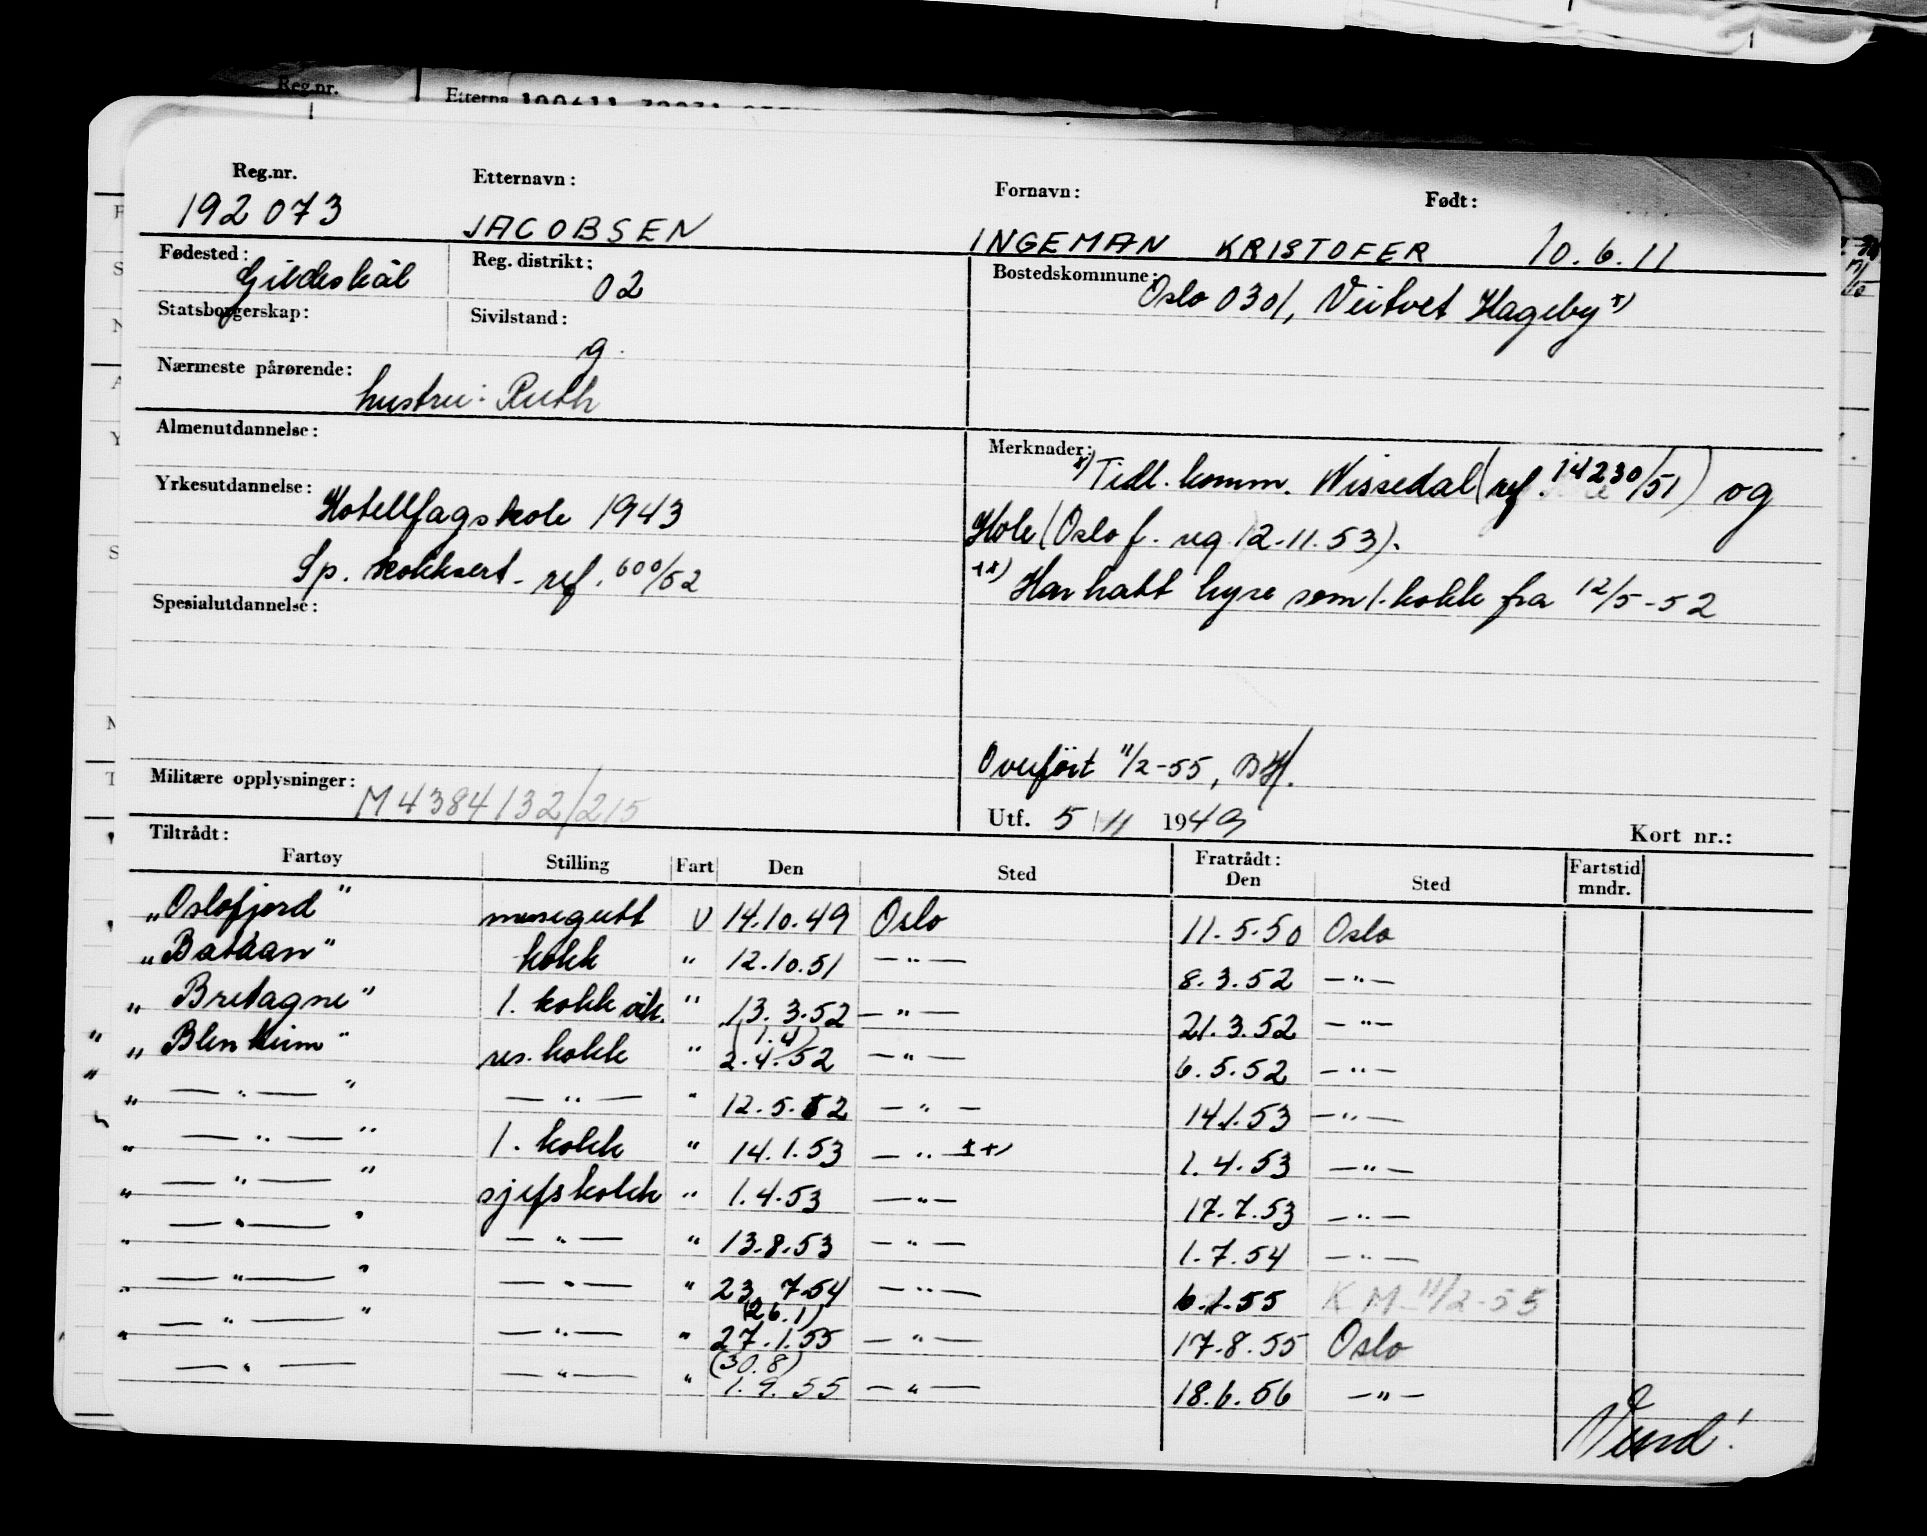 Reg.nr. Etterna
Reg.nr. Etternavn: Fornavn: Født:
192073 JACOBSEN INGEMAN KRISTOFER 10.6.11
Fødested: Gildeskål Reg. distrikt: 02 Bostedskommune: Oslo 0301, Veitvet Hageby x)
Statsborgerskap: Sivilstand: g.
Nærmeste pårørende: hustru: Ruth
Almenutdannelse:
Merknader: x) Tidl. komm. Nissedal (ref. 14230/51) og
Hole (Oslo f. reg 12.11.53).
xx) Har hatt hyre som 1. kokk fra 12/5-52
Yrkesutdannelse: Hotellfagskole 1943
Sp. kokksert. ref. 600/52
Spesialutdannelse:
Overført 11/2-55, BH.
Militære opplysninger: M4384132/215
Utf. 5/11 1949 Kort nr.:
Tiltrådt: Fratrådt:
Fartøy Stilling Fart Den Sted Den Sted Fartstid mndr.
„Oslofjord" messegutt U 14.10.49 Oslo 11.5.50 Oslo
„Bataan" kokk " 12.10.51 —"— 8.3.52 —"—
„Bretagne" 1. kokk vik. " 13.3.52 —"— 21.3.52 —"—
(1.4)
„Blenheim" res. kokk " 2.4.52 —"— 6.5.52 —"—
„—"—" —"— " 12.5.52 —"— 14.1.53 —"—
„—"—" 1. kokk " 14.1.53 —" xx) 1.4.53 —"—
„—"—" sjefskokk " 1.4.53 —"— 17.7.53 —"—
„—"—" —"— " 13.8.53 —"— 1.7.54 —"—
„—"—" —"— " 23.7.54 —"— 6.1.55 KM 11/2-55
(26.1)
„—"—" —"— " 27.1.55 —"— 17.8.55 Oslo
(30.8)
—"— —"— " 1.9.55 —"— 18.6.56 —"—
Vend!